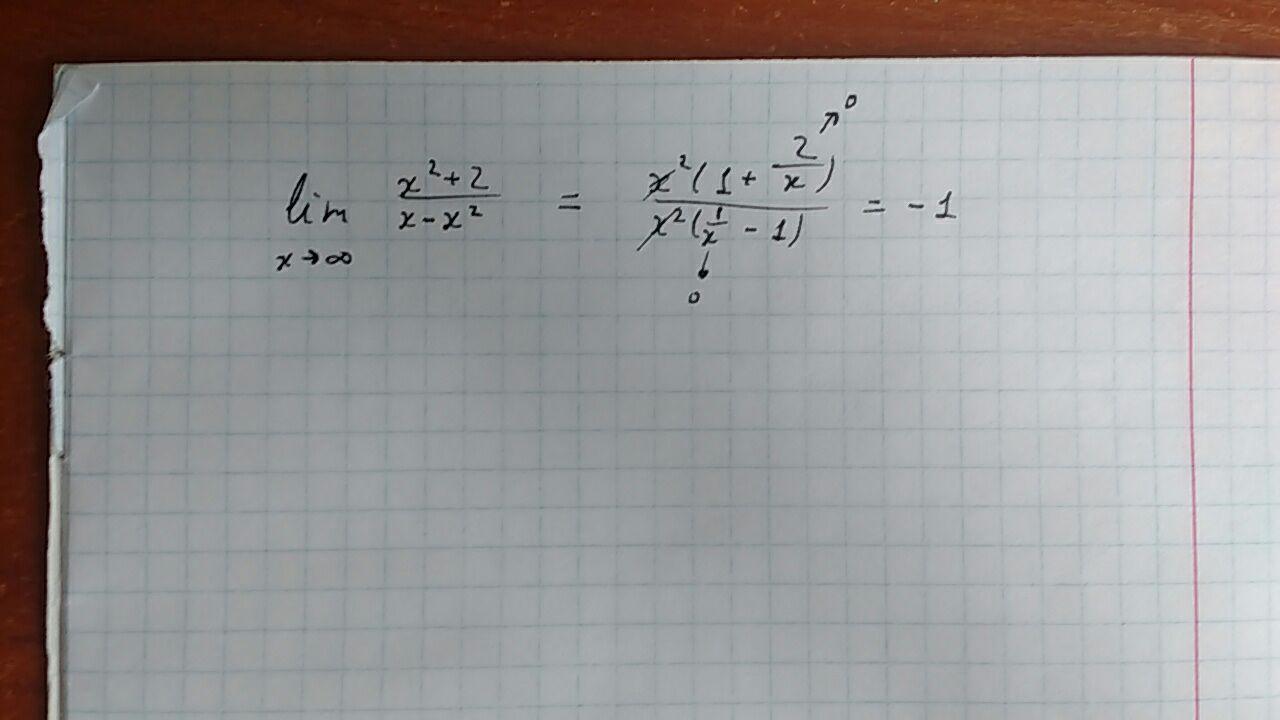 lim x→∞ (x² + 2)/(x − x²) = x²(1 + 2/x)/x²(1/x − 1) = −1
↗0
↓
0